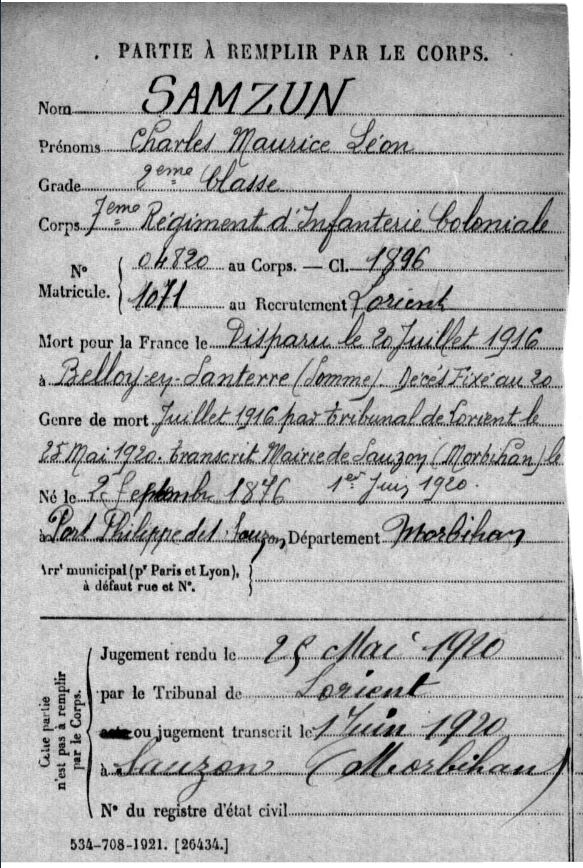 PARTIE À REMPLIR PAR LE CORPS.
Nom SAMZUN
Prénoms Charles Maurice Léon
Grade 2eme Classe
Corps 7eme Régiment d'Infanterie Coloniale
No Matricule. { 04820 au Corps. — Cl. 1896
1071 au Recrutement Lorient
Mort pour la France le Disparu le 20 Juillet 1916
à Belloy-en-Santerre (Somme). Décés Fixé au 20
Genre de mort Juillet 1916 par tribunal de Lorient le
25 Mai 1920. transcrit Mairie de Sauzon (Morbihan) le
Né le 2 Septembre 1876 1er Juin 1920.
à Port Philippe Sauzon Département Morbihan
Arrt municipal (pr Paris et Lyon),
à défaut rue et No.
Cette partie
n'est pas à remplir
par le Corps.
Jugement rendu le 25 Mai 1920
par le Tribunal de Lorient
ou jugement transcrit le 1 Juin 1920
à Sauzon (Morbihan)
No du registre d'état civil
534-708-1921. [26434.]